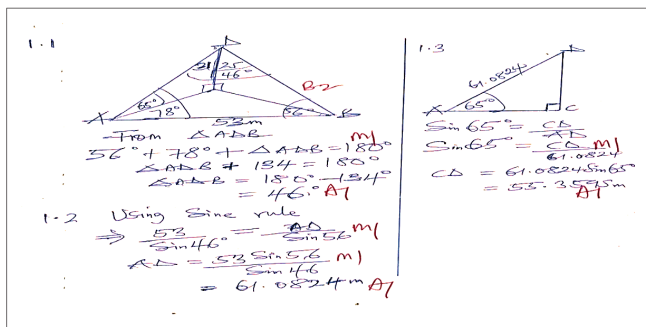 1.1
D
21 25
46°
B2
65°
78°
56°
A
B
53m
From △ADB
56° + 78° + △ADB = 180° M1
△ADB + 134 = 180°
△ADB = 180° - 134°
= 46° A1
1.2 Using Sine rule
⇒ 53/Sin46° = AD/Sin56 M1
AD = 53 Sin56/Sin46 M1
= 61.0824m A1
1.3
D
61.0824
65°
A
C
Sin65° = CD/AD
Sin65° = CD/61.0824 M1
CD = 61.0824Sin65°
A1